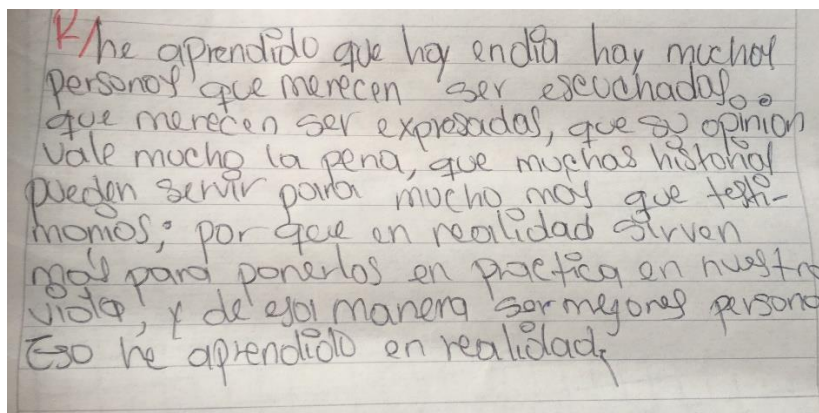 R/he aprendido que hoy en dia hay muchas
personas que merecen ser escuchadas
que merecen ser expresadas, que su opinion
vale mucho la pena, que muchas historias
pueden servir para mucho mas que testi-
monios; por que en realidad sirven
más para ponerlos en practica en nuestra
vida, y de esa manera ser mejores persona
Eso he aprendido en realidad.